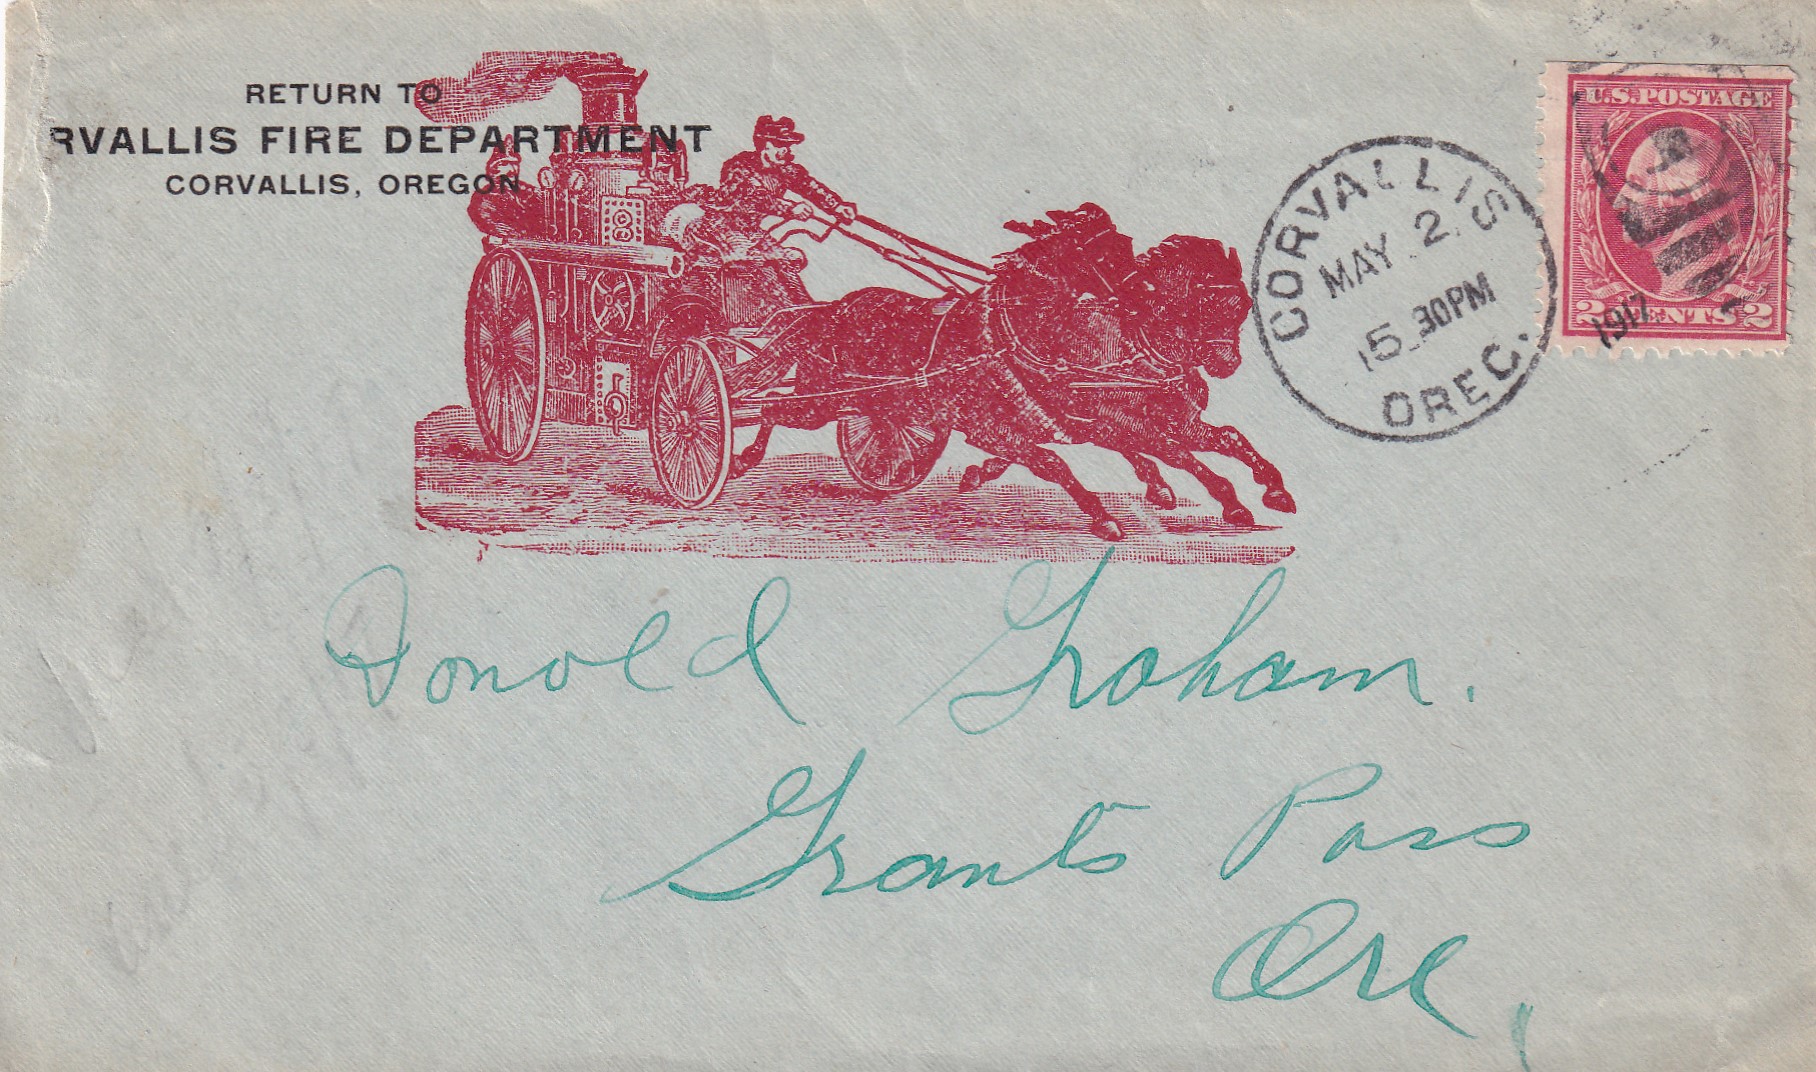 RETURN TO
RVALLIS FIRE DEPARTMENT
CORVALLIS, OREGON
CORVALLIS
MAY 2
5 30PM
1917
OREG.
U.S. POSTAGE
2 CENTS 2
Donald Graham.
Grants Pass
Ore,